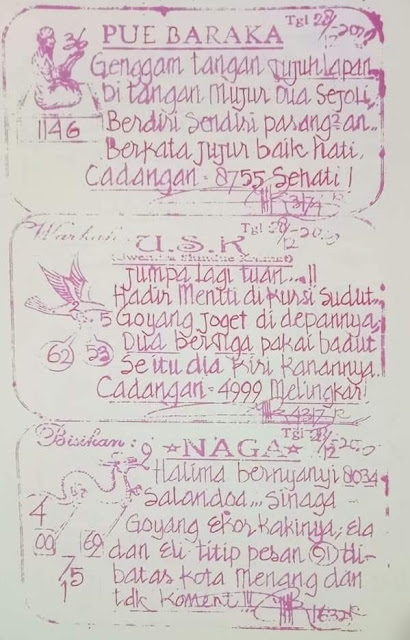 PUE BARAKA
Tgl 28/12-2022
36
1146
Genggam tangan Jujuh Lapan
Di tangan Mujur Dua Sejoli
Berdiri Sendiri pasang²an..
Berkata Jujur baik hati.
Cadangan = 8755 Sehati!
Warkah
U.S.K
Tgl 28/12-2022
Jumpa lagi tuan...!!
Hadir Meniti di kursi Sudut..
5
Goyang Joget di depannya
62
53
Dua bertiga pakai badut
Se itu dia kiri kanannya.
Cadangan = 4999 Melingkar!
Bisikan :
☆NAGA☆
Tgl 28/12-2022
9
Halima bernyanyi 8034
Salandoa... Sinaga
4
Goyang Ekor kakinya, Ela
00
69
dan Eli titip pesan 91 di-
batas kota Menang dan
15
tdk koment!!!